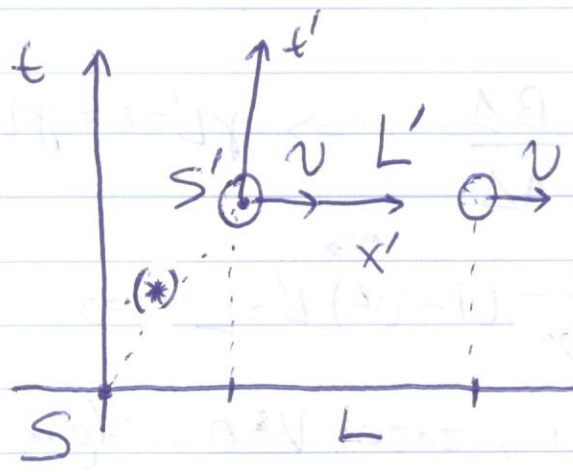 t t'
S' v L' v
x'
(*)
S L